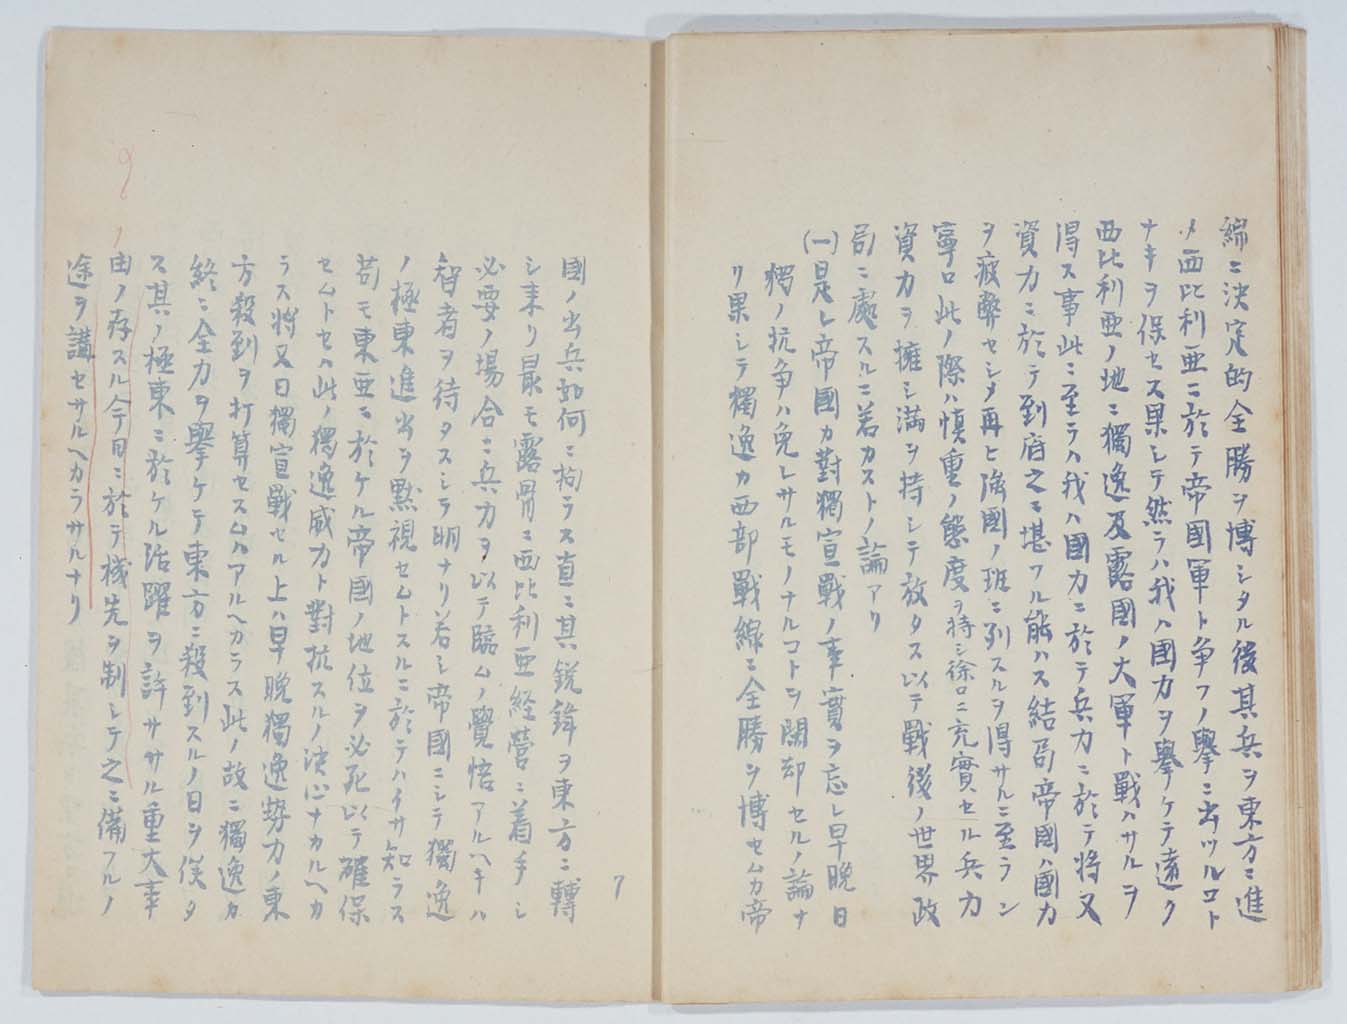 線ニ決定的全勝ヲ博シタル後其兵ヲ東方ニ進
メ西比利亜ニ於テ帝國軍ト争フノ擧ニ出ツルコト
ナキヲ保セス果シテ然ラハ我ハ國力ヲ擧ケテ遠ク
西比利亜ノ地ニ獨逸及露國ノ大軍ト戰ハサルヲ
得ス事此ニ至ラハ我ハ國力ニ於テ兵力ニ於テ将又
資力ニ於テ到底之ニ堪フル能ハス結局帝國ハ國力
ヲ疲弊セシメ再ヒ強國ノ班ニ列スルヲ得サルニ至ラン
寧ロ此ノ際ハ慎重ノ態度ヲ持シ徐ロニ充實セル兵力
資力ヲ擁シ満ヲ持シテ放タス以テ戰後ノ世界政
局ニ處スルニ若カストノ論アリ
(一)是レ帝國カ對獨宣戰ノ事實ヲ忘レ早晩日
獨ノ抗争ハ免レサルモノナルコトヲ閑却セルノ論ナ
リ果シテ獨逸カ西部戰線ニ全勝ヲ博セムカ帝
7
國ノ出兵如何ニ拘ラス直ニ其鋭鋒ヲ東方ニ轉
シ来リ最モ露骨ニ西比利亜経営ニ着手シ
必要ノ場合ニ兵力ヲ以テ臨ムノ覺悟アルヘキハ
智者ヲ待タスシテ明ナリ若シ帝國ニシテ獨逸
ノ極東進出ヲ黙視セムトスルニ於テハイサ知ラス
苟モ東亜ニ於ケル帝國ノ地位ヲ必死以テ確保
セムトセハ此ノ獨逸威力ト對抗スルノ決心ナカルヘカ
ラス将又日獨宣戰セル上ハ早晩獨逸勢力ノ東
方殺到ヲ打算セスムハアルヘカラス此ノ故ニ獨逸カ
終ニ全力ヲ擧ケテ東方ニ殺到スルノ日ヲ俟タ
ス其ノ極東ニ於ケル活躍ヲ許ササル重大事
由ノ存スル今日ニ於テ機先ヲ制シテ之ニ備フルノ
途ヲ講セサルヘカラサルナリ